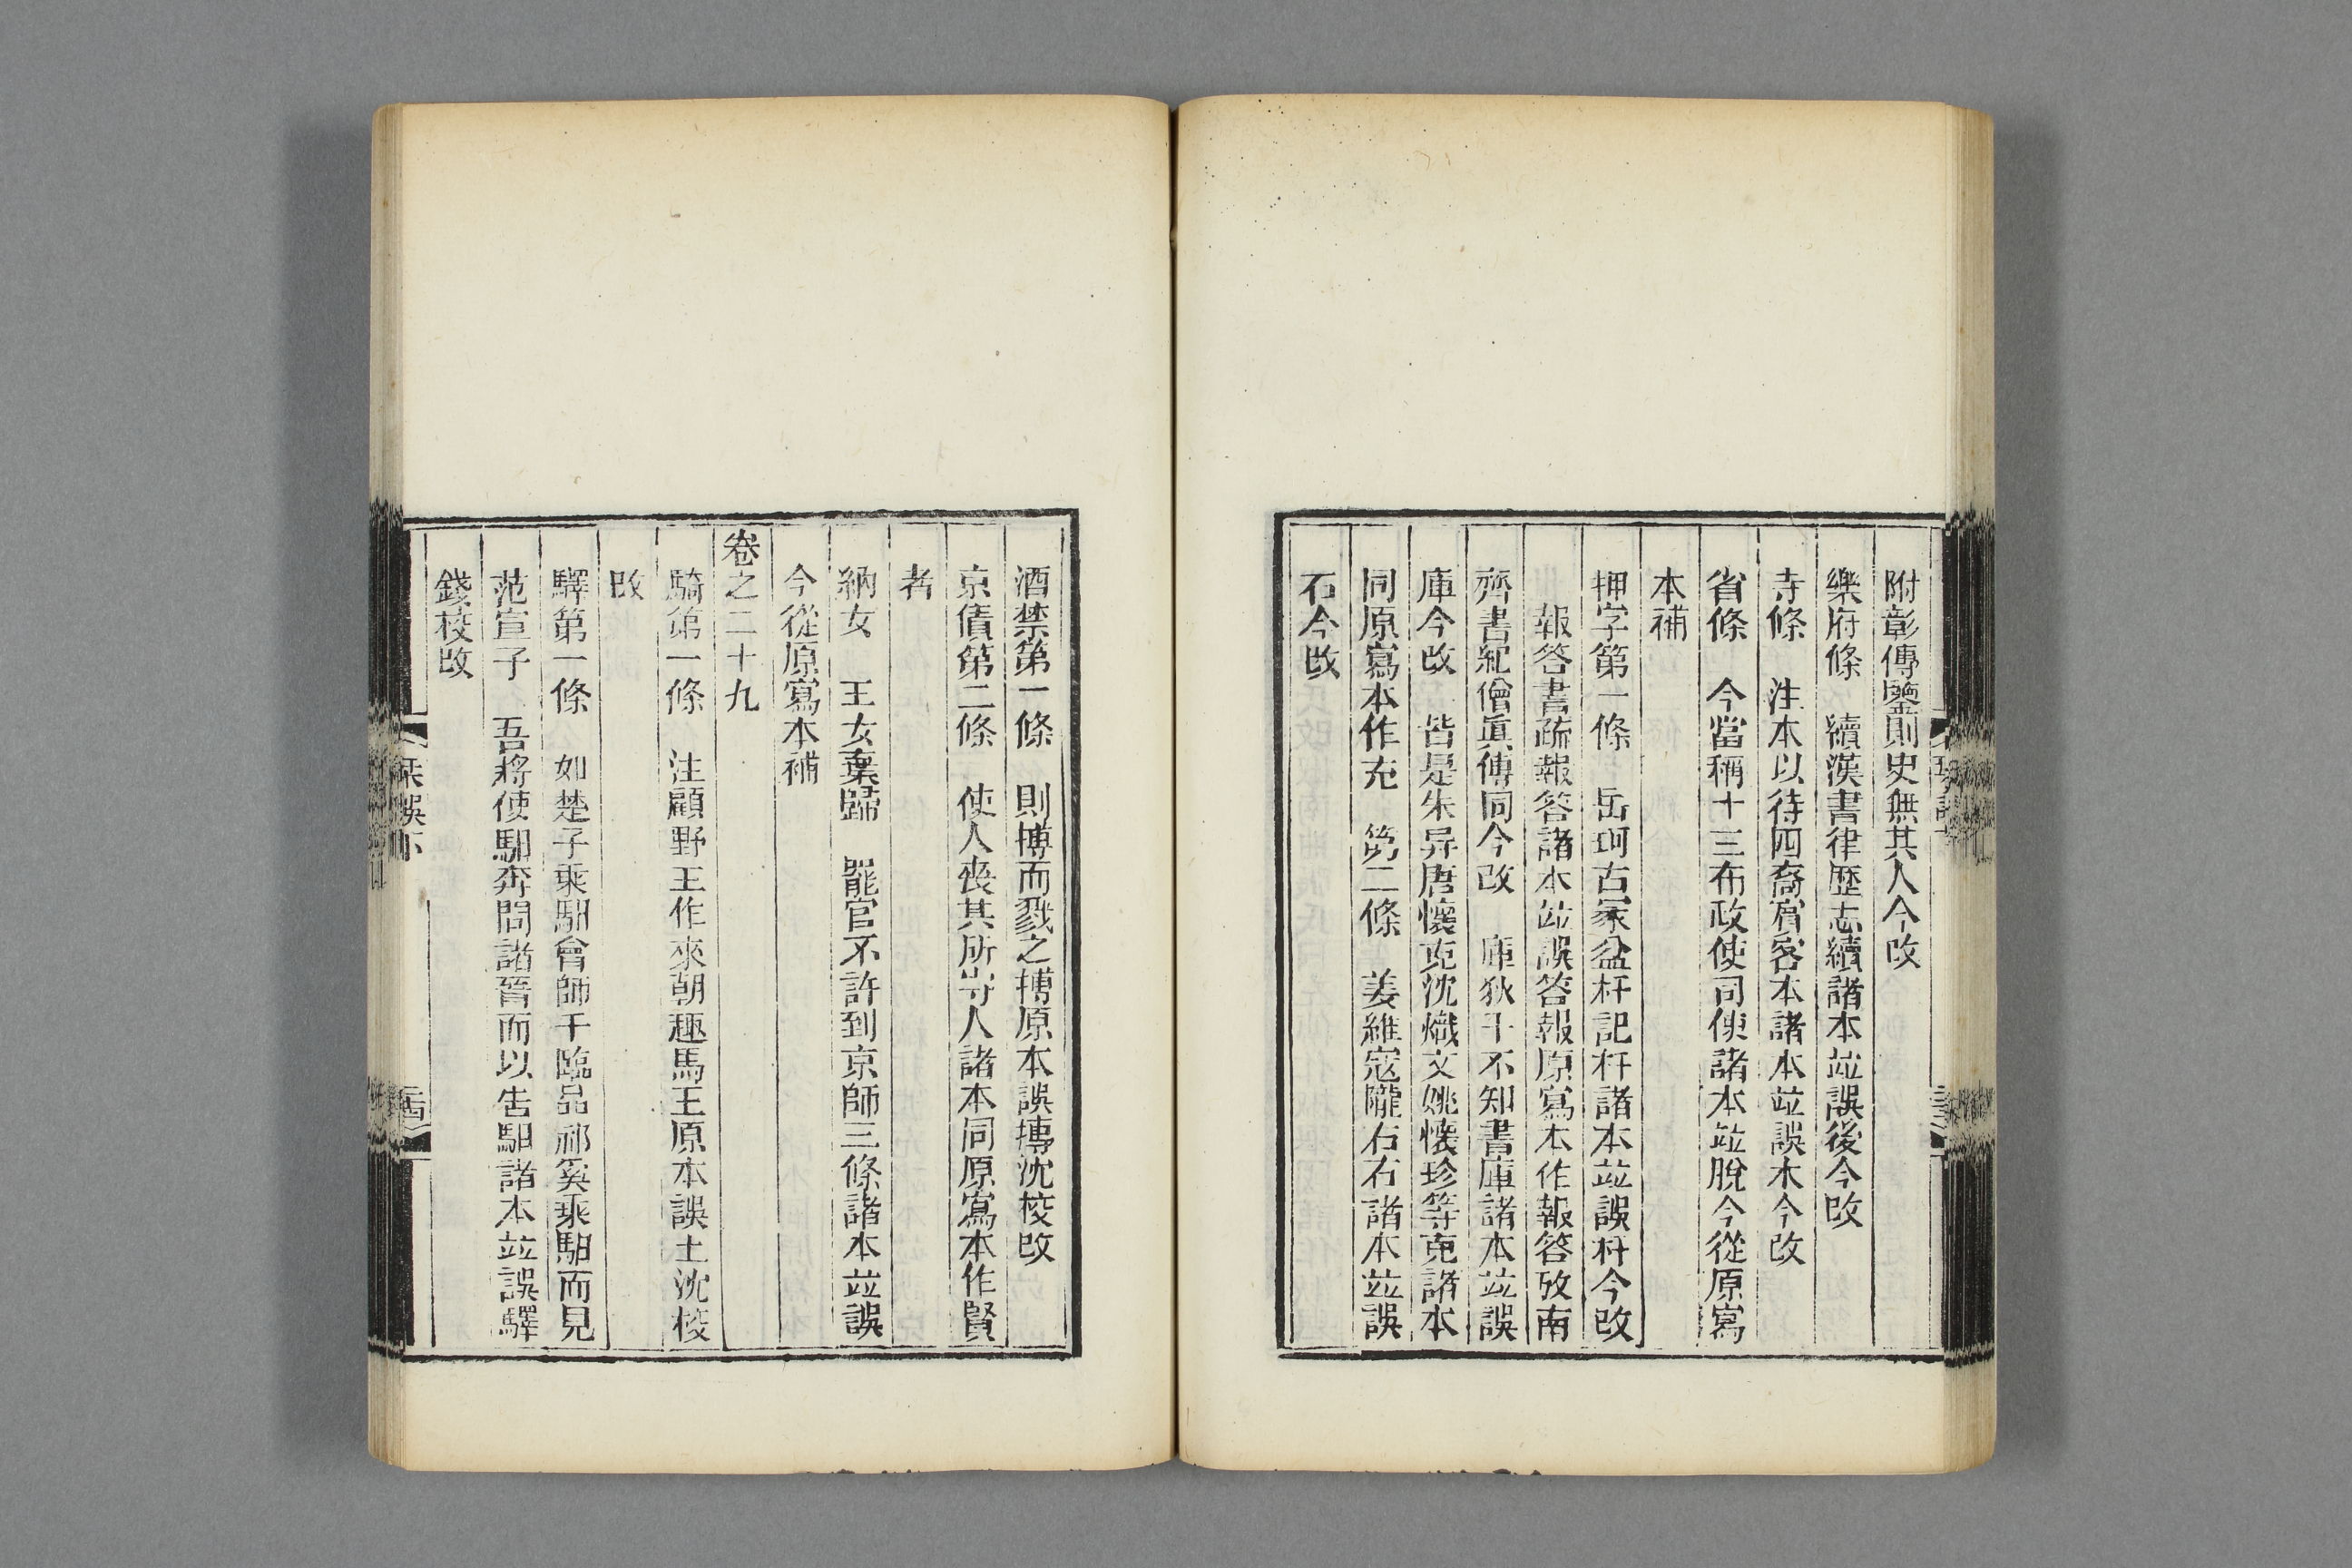 附彰傳鑒則史無其人今改
樂府條　續漢書律歷志續諸本竝誤後今改
寺條　注本以待四裔賓客本諸本竝誤木今改
省條　今當稱十三布政使司使諸本竝脫今從原寫
本補
押字第一條　岳珂古冢盆杅記杅諸本竝誤杆今改
報答書疏報答諸本竝誤答報原寫本作報答攷南
齊書紀僧眞傳同今改　庫狄干不知書庫諸本竝誤
庫今改　皆是朱异唐懷克沈熾文姚懷珍等克諸本
同原寫本作充　第二條　姜維寇隴右右諸本竝誤
石今改
酒禁第一條　則搏而戮之搏原本誤摶沈校改
京債第二條　使人喪其所守人諸本同原寫本作賢
者
納女　王女棄歸　罷官不許到京師三條諸本竝誤
今從原寫本補
卷之二十九
騎第一條　注顧野王作來朝趣馬王原本誤土沈校
改
驛第一條　如楚子乘馹會師于臨品祁奚乘馹而見
范宣子　吾將使馹奔問諸晉而以告馹諸本竝誤驛
錢校改